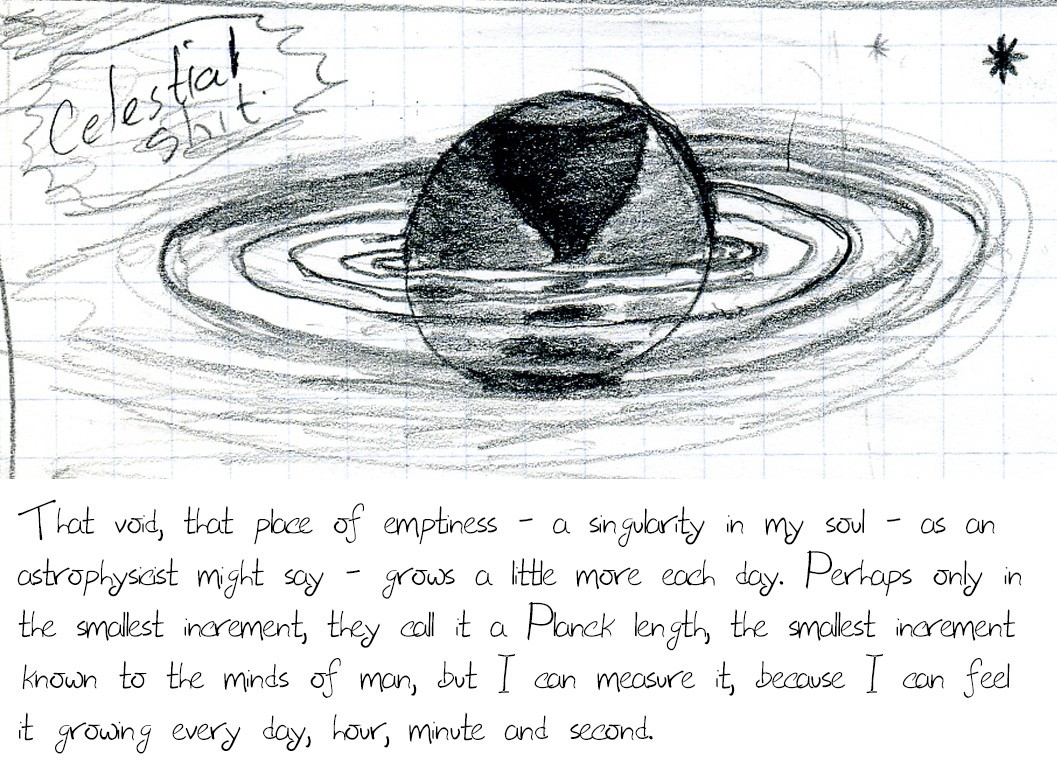 Celestial
shit.
That void, that place of emptiness - a singularity in my soul - as an
astrophysicist might say - grows a little more each day. Perhaps only in
the smallest increment, they call it a Planck length, the smallest increment
known to the minds of man, but I can measure it, because I can feel
it growing every day, hour, minute and second.